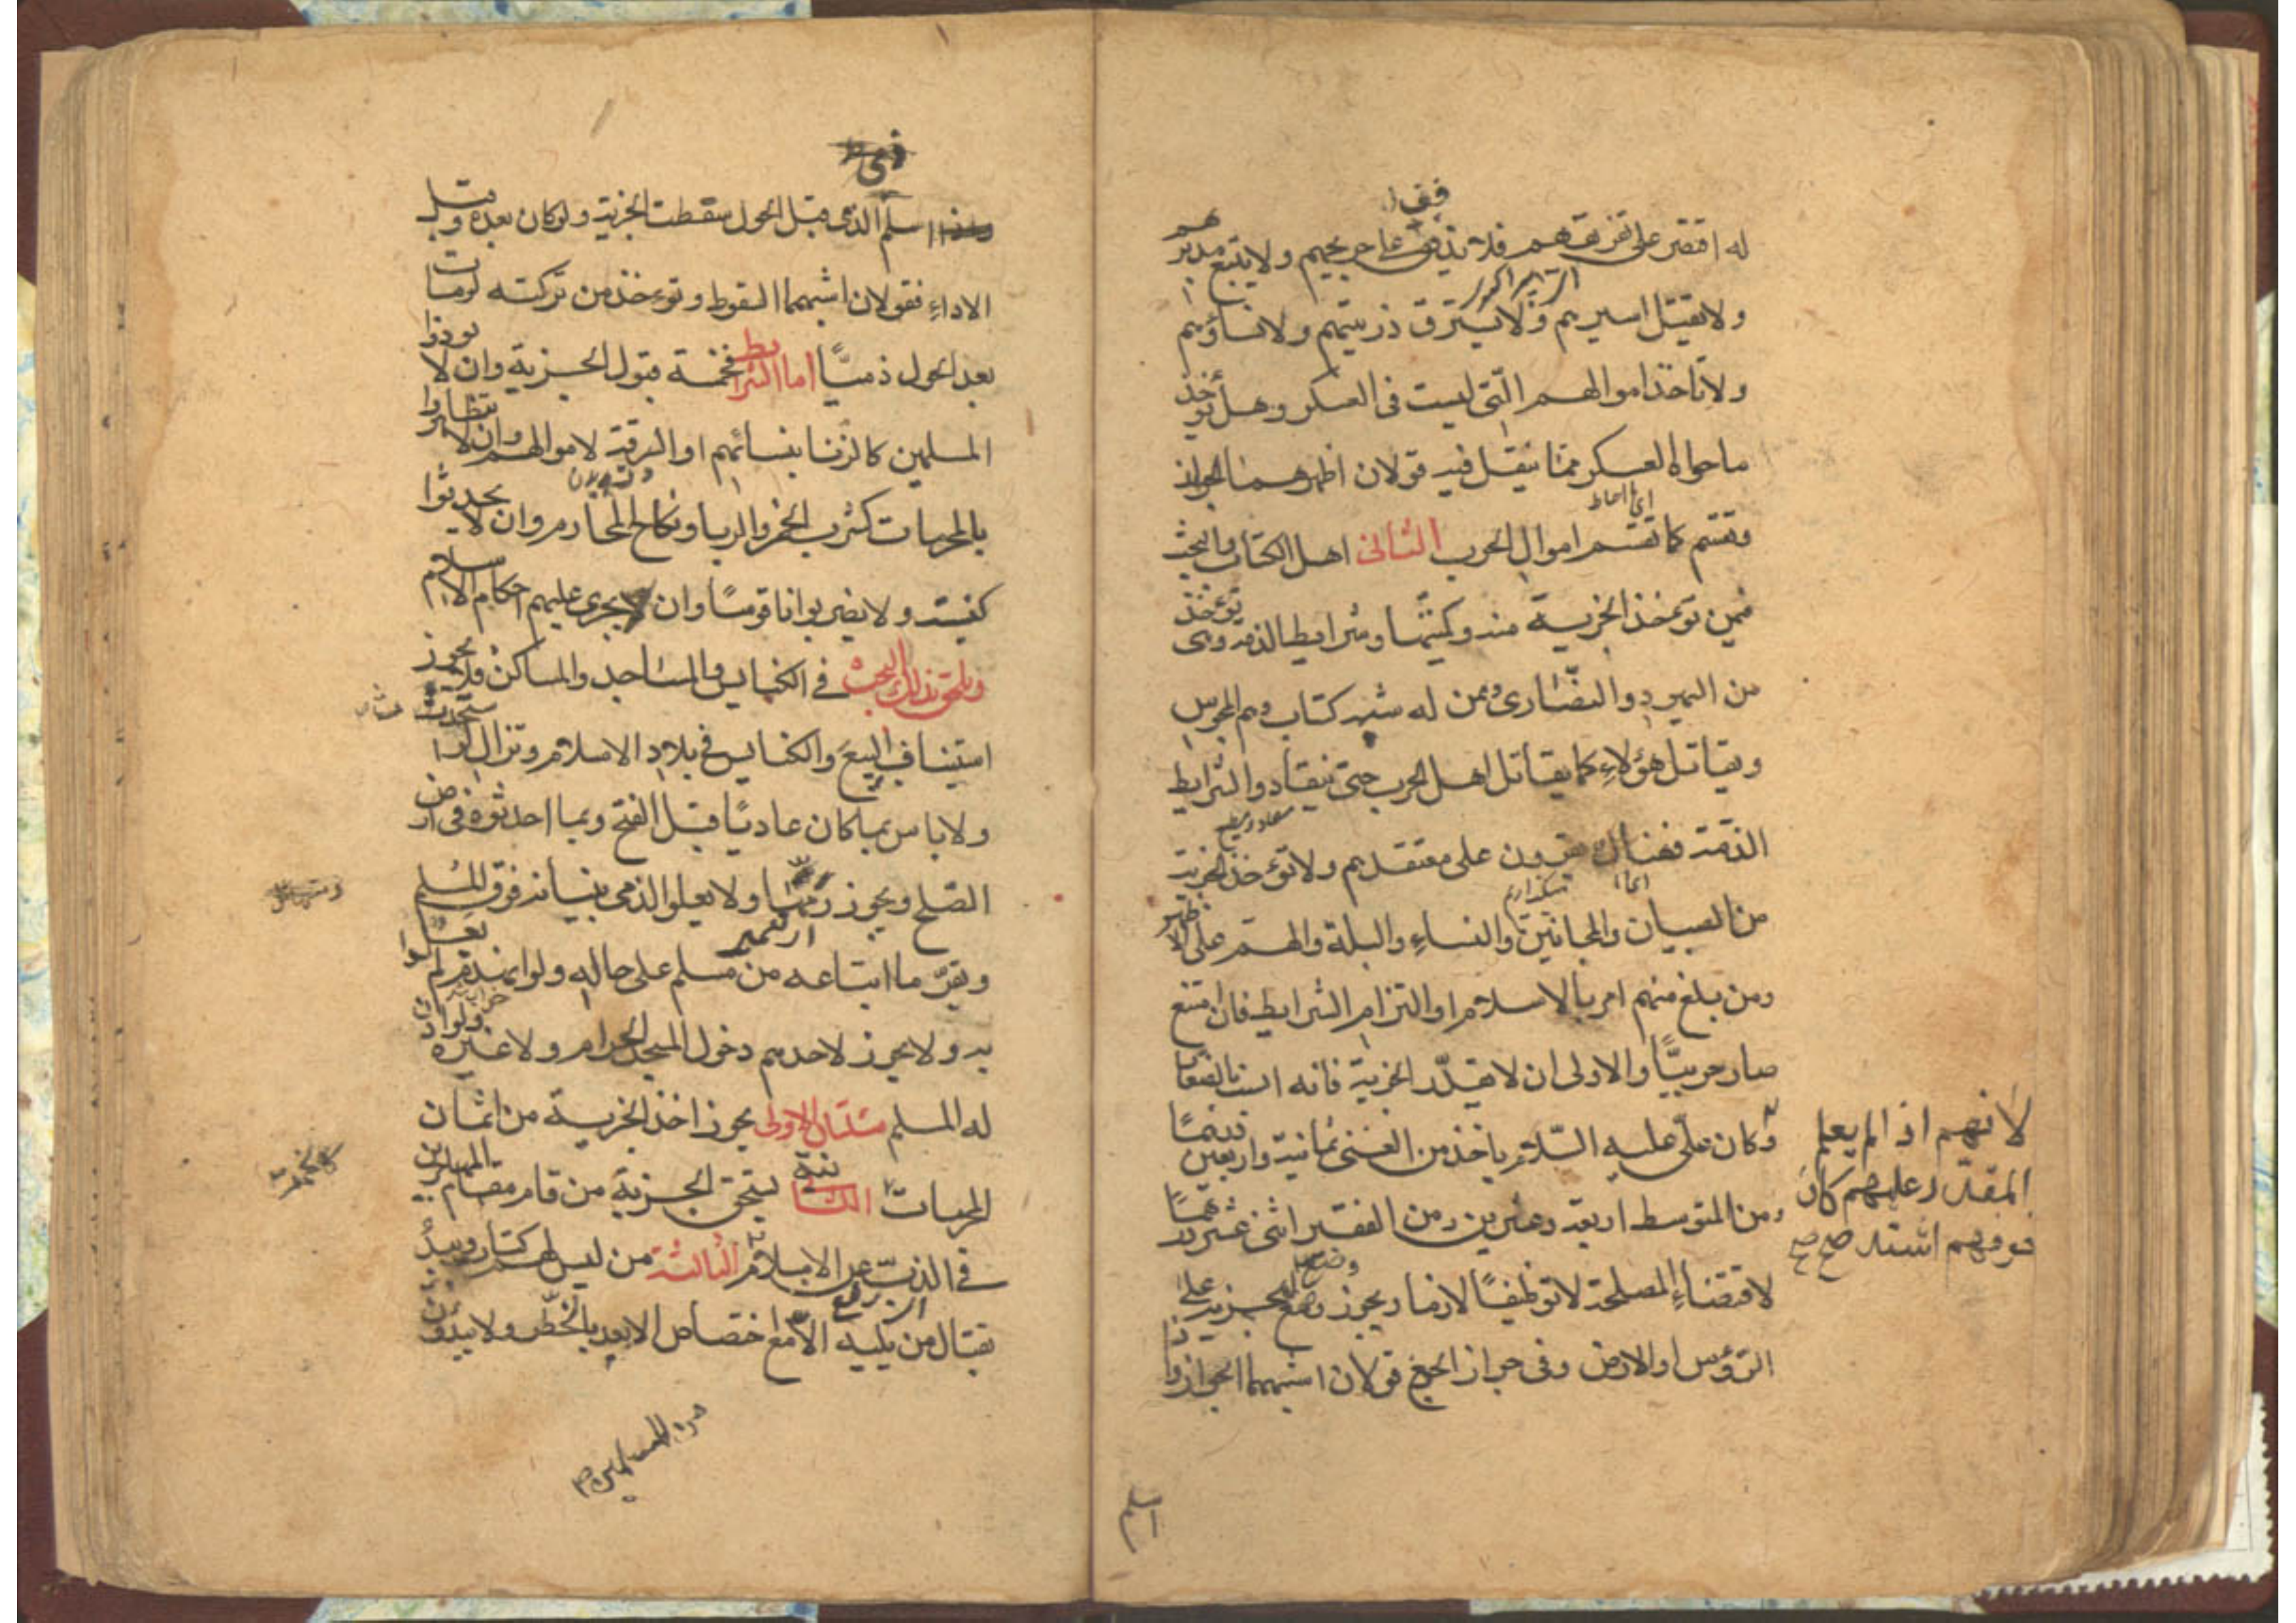 له اقتصر على تفريقهم فلا يذفف على جريحهم ولا يتبع مدبرهم
ولا يقتل اسيرهم ولا يسترق ذريتهم ولا نساؤهم
ولا تاخذ اموالهم التي ليست في العسكر وهل يؤخذ
ما حواه العسكر مما ينقل فيه قولان اظهرهما الجواز
وتقسم كما تقسم اموال الحرب الثاني اهل الكتاب والبحث
فيمن تؤخذ الجزية منه وكميتها وشرايط الذمة وهي تؤخذ
من اليهود والنصارى وممن له شبه كتاب وهم المجوس
ويقاتل هؤلاء كما يقاتل اهل الحرب حتى ينقادوا لشرايط
الذمة فهناك يقرون على معتقدهم ولا تؤخذ الجزية
من الصبيان والمجانين والنساء والبله والهم على الاظهر
ومن بلغ منهم امر بالاسلام او التزام الشرايط فان امتنع
صار حربيا والاولى ان لا يقدر الجزية فانه انسب بالصغار
وكان علي عليه السلام ياخذ من الغني ثمانية واربعين درهما
ومن المتوسط اربعة وعشرين ومن الفقير اثنى عشر درهما
لاقتضاء المصلحة لا توظيفا لازما ويجوز وضع الجزية على
الرؤس او الارض وفي جواز الجمع قولان اشبههما الجواز واذا
لانهم اذا لم يعلم
المقدر عليهم كان
خوفهم اشد صح صح
اسلم
اسلم الذمي قبل الحول سقطت الجزية ولو كان بعده وقبل
الاداء فقولان اشبههما السقوط وتوءخذ من تركته لو مات
بعد الحول ذميا اما الشرايط فخمسة قبول الجزية وان لا يوذوا
المسلمين كالزنا بنسائهم او السرقة لاموالهم وان لا يتظاهروا
بالمحرمات كشرب الخمر والربا ونكاح المحارم وان لا يحدثوا
كنيسة ولا يضربوا ناقوسا وان يجري عليهم احكام الاسلام
ويلحق بذلك البحث في الكنايس والمساجد والمساكن فلا يجوز
استيناف البيع والكنايس في بلاد الاسلام وتزال لو استحدثت
ولا باس بما كان عاديا قبل الفتح وبما احدثوه في ارض
الصلح ويجوز رمها ولا يعلو الذمي بنيانه فوق المسلم
ويقر ما ابتاعه من مسلم على حاله ولو انهدم لم يعل
به ولا يجوز لاحدهم دخول المسجد الحرام ولا غيره ولو اذن
له المسلم مسئلتان الاولى يجوز اخذ الجزية من اثمان
المحرمات الثانية يستحق الجزية من قام مقام المهاجرين
في الذب عن الاسلام الثالثة من ليس لهم كتاب ويبدأ
بقتال من يليه الا مع اختصاص الابعد بالخطر ولا يبدؤن
من المسلمين